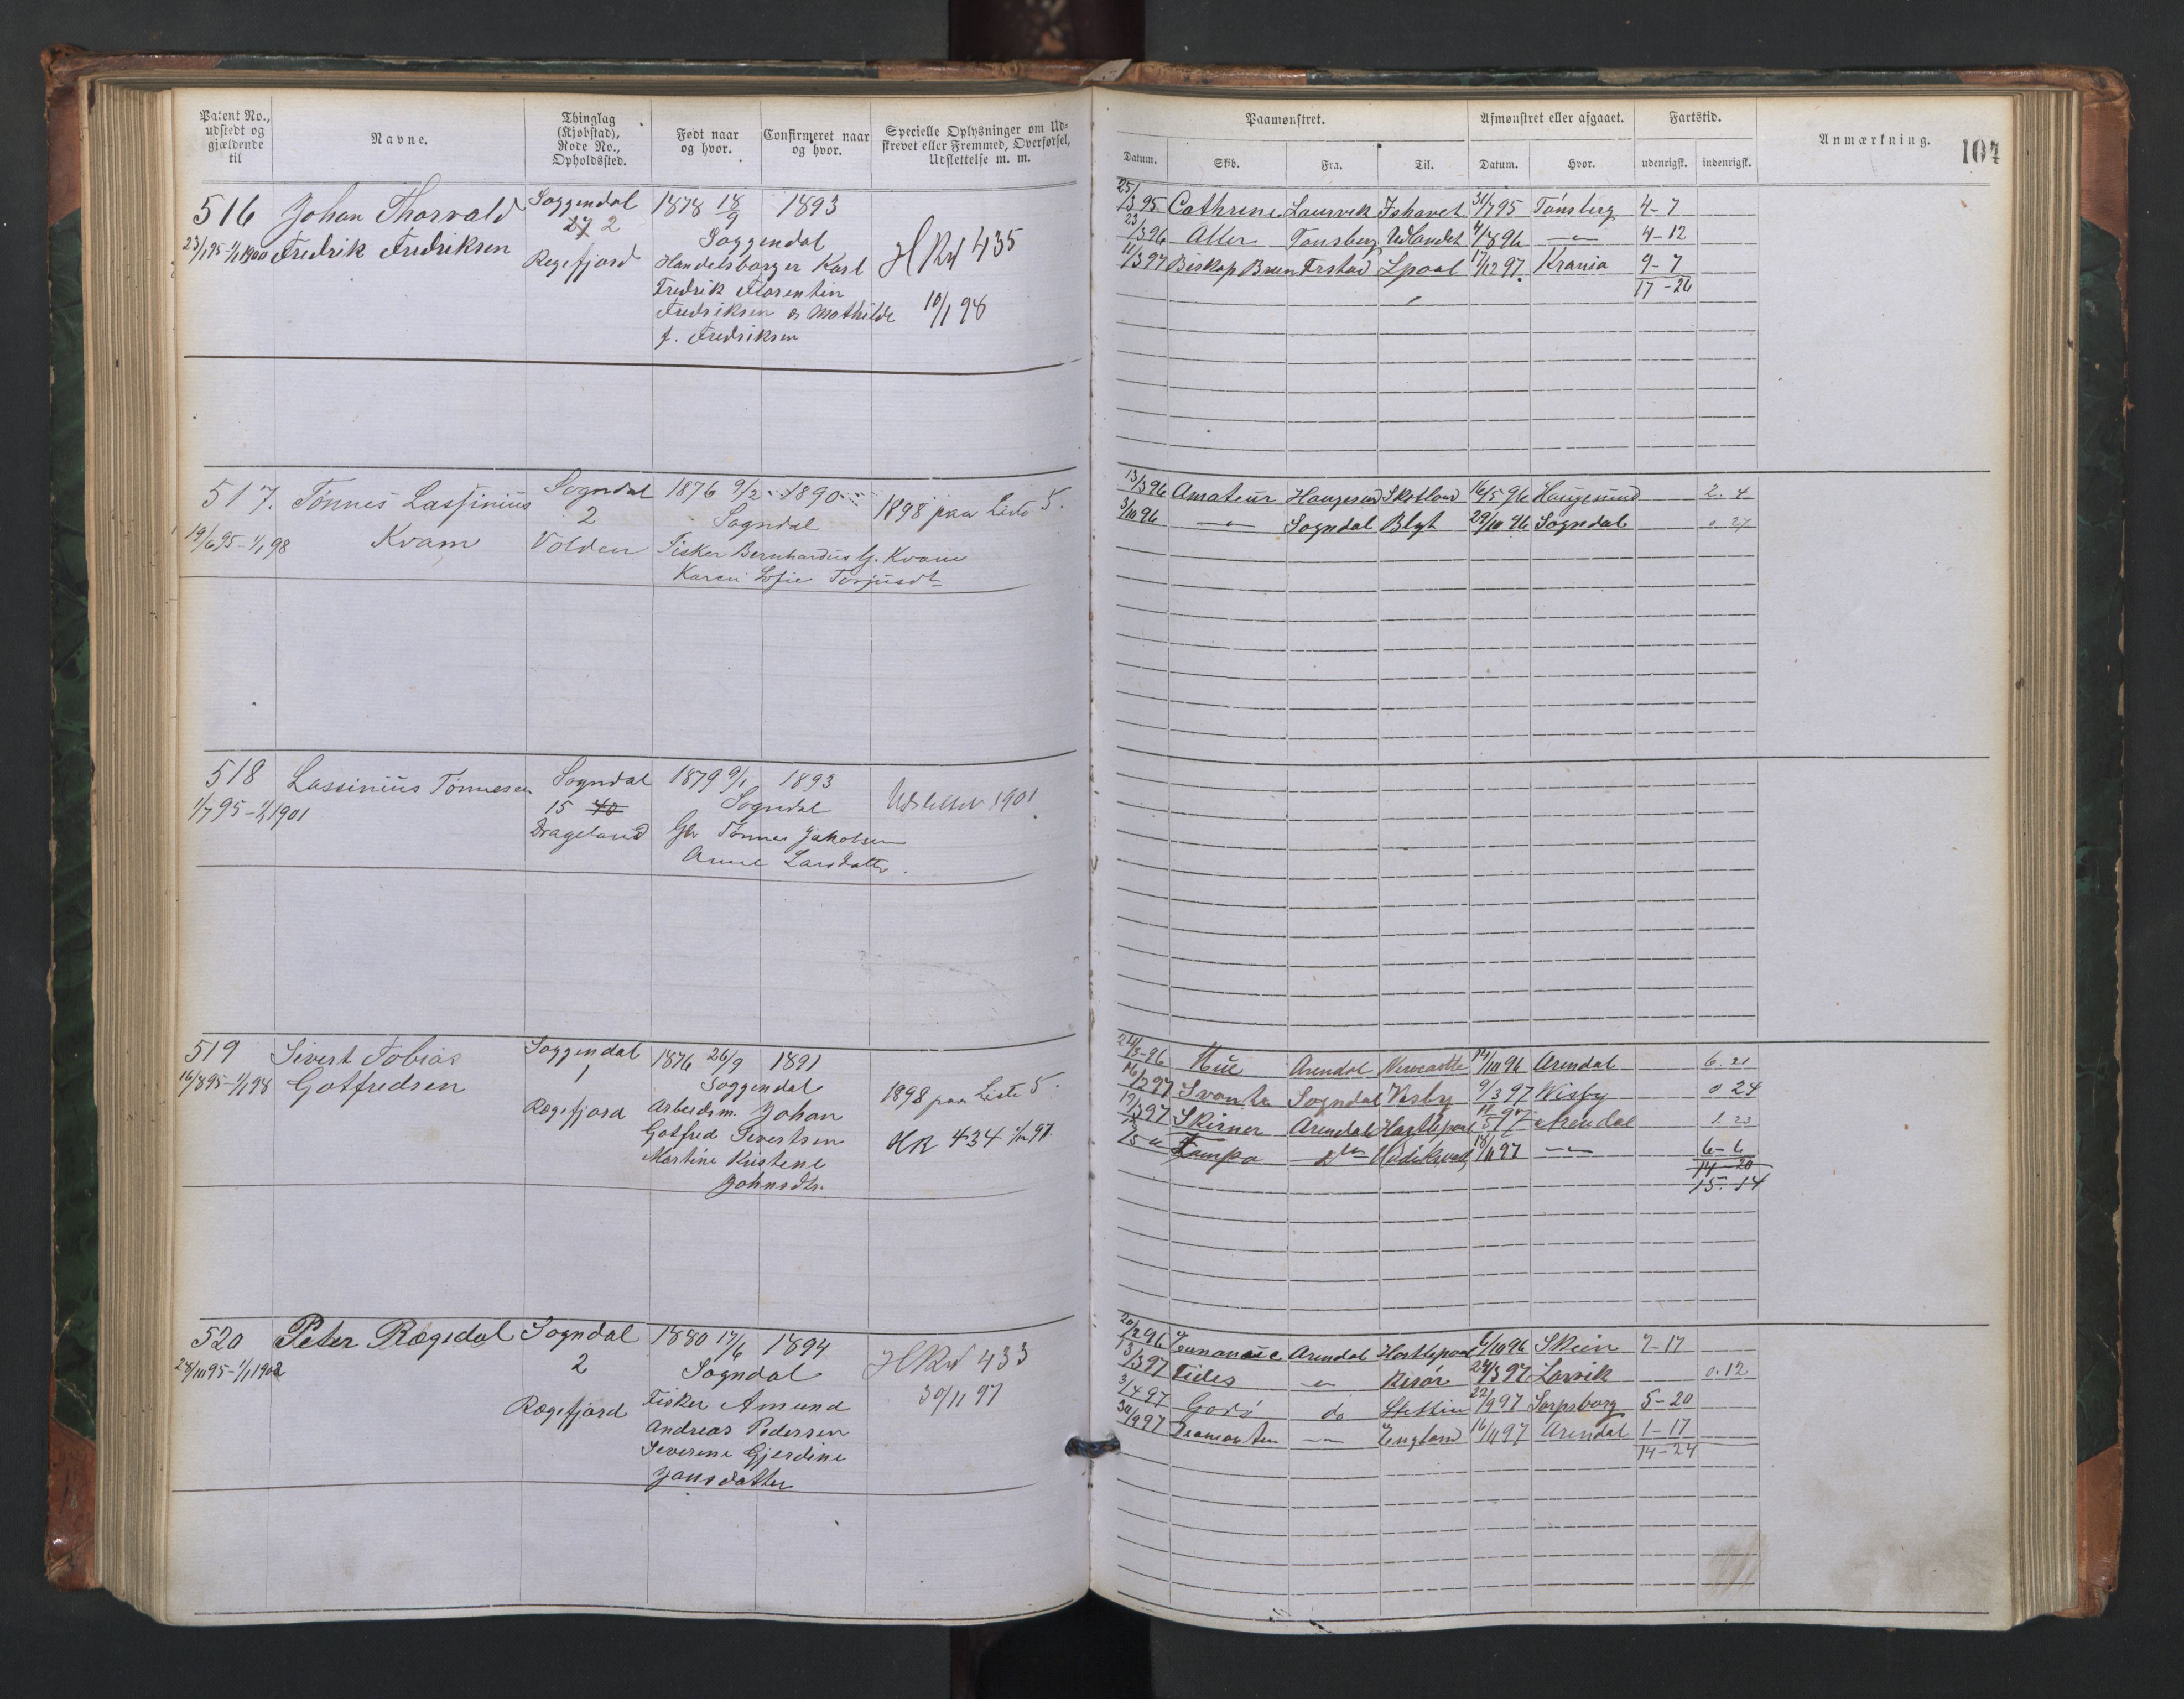 Patent No., udstedt og gjældende til
Navne.
Thinglag (Kjøbstad), Rode No., Opholdssted.
Født naar og hvor.
Confirmeret naar og hvor.
Specielle Oplysninger om Udskrevet eller Fremmed, Overførsel, Udslettelse m. m.
Paamønstret.
Afmønstret eller afgaaet.
Fartstid.
Anmærkning.
104
Datum. Skib. Fra. Til. Datum. Hvor. udenrigsk. indenrigsk.
516 Johan Thorvald Soggendal 1878 18/9 1893
23/1 95-1/1 1900 Fredrik Fredriksen 27 2 Soggendal
Regefjord Handelsborger Karl HRul 435
Fredrik Florentin
Fredriksen og Mathilde 10/1 98
f. Fredriksen
25/3 95 Cathrine Laurvik Ishavet 31/7 95 Tønsberg 4-7
23/3 96 Atler Tønsberg Udlandet 4/8 96 — 4-12
11/3 97 Biskop Brun Frstad Lpool 17/12 97 Krania 9-7
17-26
517. Tønnes Lassinius Sogndal 1876 9/2 1890
2 Sogndal 1898 paa Liste 5.
19/6 95-1/1 98 Kvam Volden Fisker Bernhardus G. Kvam
Karen Sofie Torjusdt
13/3 96 Amateur Haugesund Skotland 16/5 96 Haugesund 2. 4
3/10 96 — Sogndal Blyt 29/10 96 Sogndal 0. 27
518 Lassinius Tønnesen Sogndal 1879 9/1 1893
1/7 95-1/1 1901 15 40 Sogndal Udslettet 1901
Drageland Gbr Tønnes Jakobsen
Anne Larsdatter.
519 Sivert Tobias Soggendal 1876 26/9 1891
16/8 95-1/1 98 Gotfredsen 1 Soggendal 1898 paa Liste 5.
Rægefjord Arbeidsm. Johan
Gotfred Sivertsen HR 434 97.
Martine Kristene
Johnsdtr.
24/3-96 Arendal Newcastle 14/10 96 Arendal 6. 21
16/2 97 Svanta Sogndal Visby 9/3 97 Wisby 0 24
19/3 97 Skirner Arendal Hartlepool 11/5 97 Arendal 1. 23
Tampa do 18/11 97 — 6-6
14-20
15. 14
520 Peter Rægedal Sogndal 1880 17/6 1894 HRul 433
28/10 95-1/1 1902 2 Sogndal 30/11 97
Rægefjord Fisker Amund
Andreas Pedersen
Severine Gjerdine
Jansdatter
20/2 96 Arendal Hartlepool 6/10 96 Skien 7-17
13/3 97 Fides — Risør 24/3 97 Larvik 0. 12
3/4 97 do Stettin 22/9 97 Sarpsborg 5-20
30/9 97 — England 16/11 97 Arendal 1-17
14-24